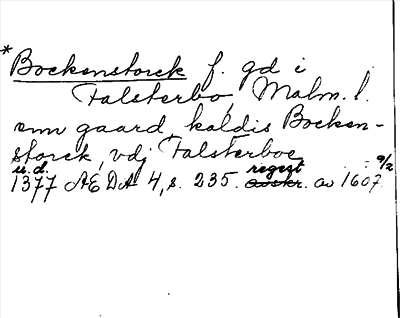 *Bockenstorck f. gd i
Falsterbo, Malm. l.
enn gaard kaldis Bocken-
storck, vdj Falsterboe
u.d. regest 9/2
1377 AEDA 4, s. 235. avskr. av 1607